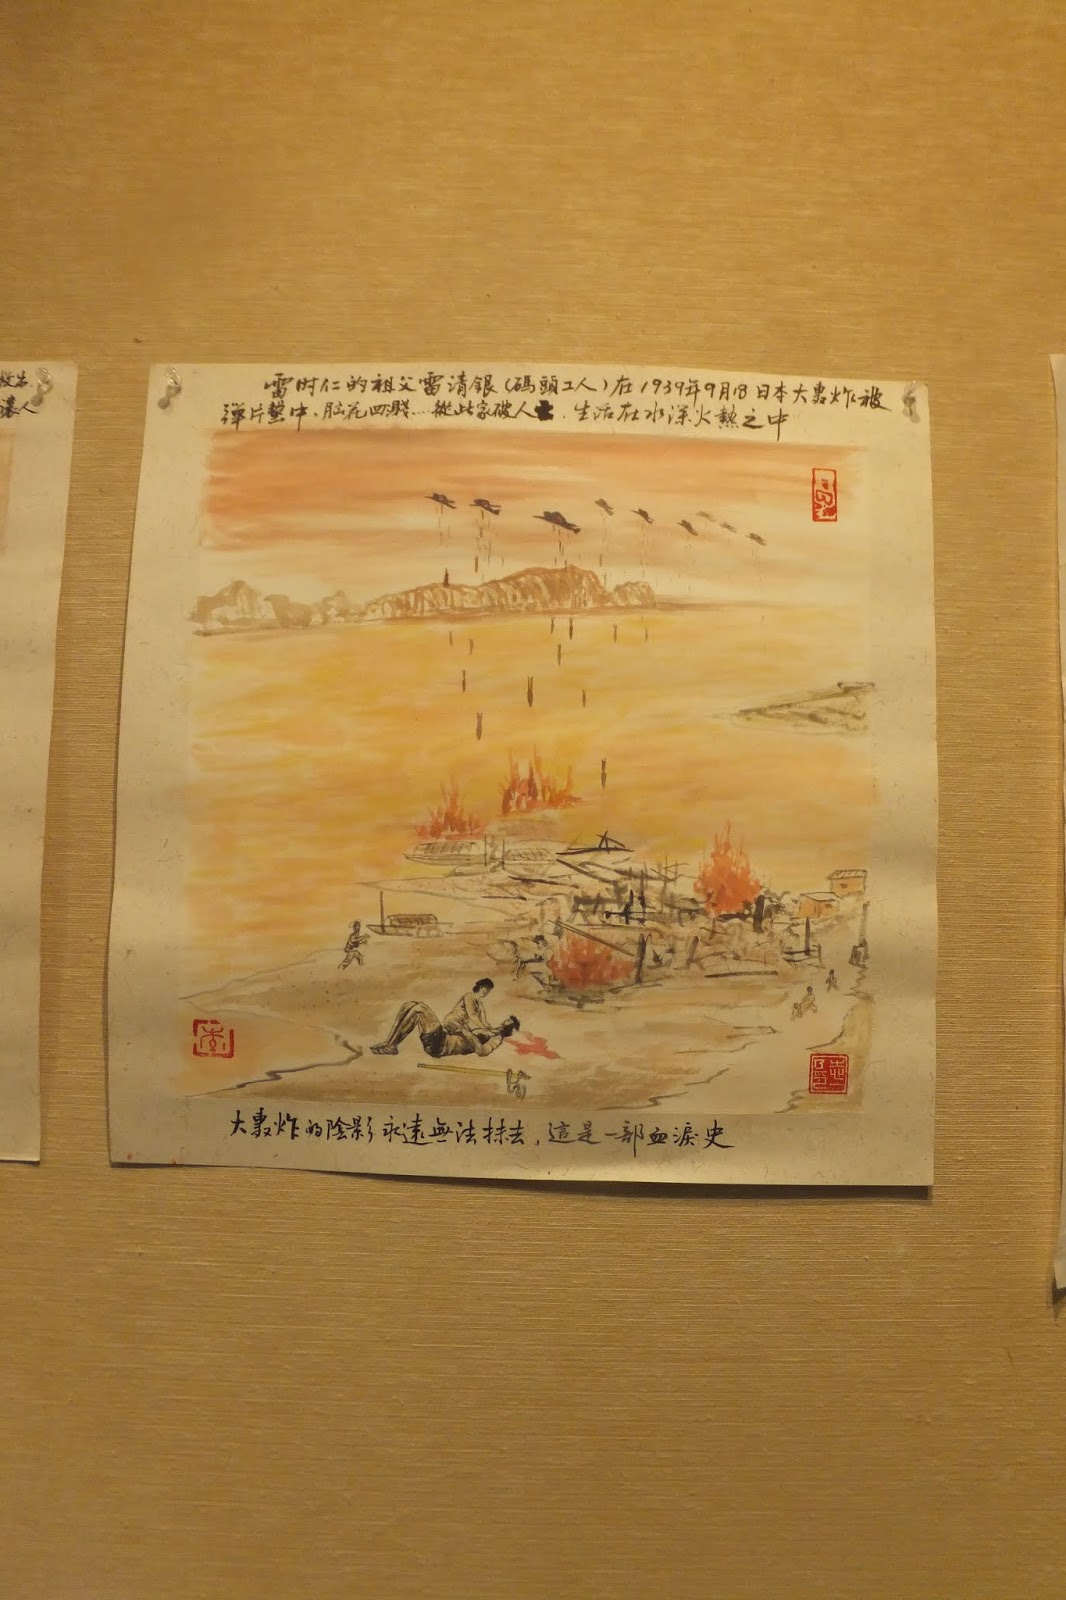 雷时仁的祖父雷清銀(碼頭工人)在1939年9月18日本大轟炸被
彈片墊中、脑花四濺...從此家破人亡.生活在水深火熱之中
大轟炸的陰影永遠無法抹去,這是一部血淚史
讓人